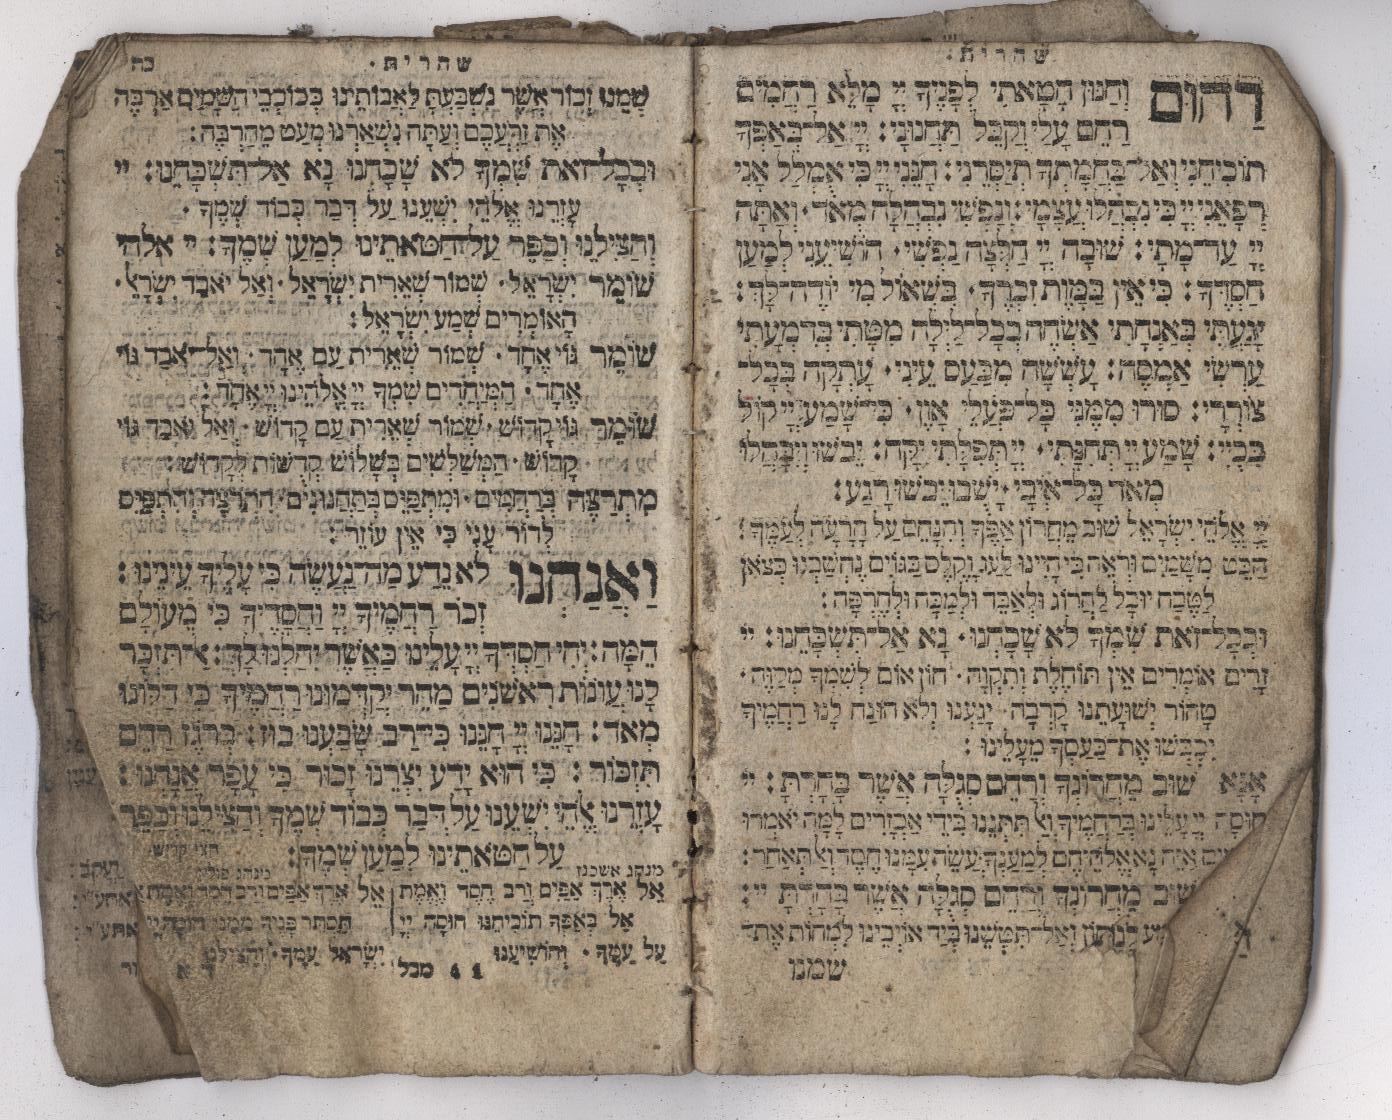 שחרית.
רחום וחנון חטאתי לפניך יי מלא רחמים
רחם עלי וקבל תחנוני: יי אל־באפך
תוכיחני ואל־בחמתך תיסרני: חנני יי כי אמלל אני
רפאני יי כי נבהלו עצמי: ונפשי נבהלה מאד. ואתה
יי עד־מתי: שובה יי חלצה נפשי. הושיעני למען
חסדך: כי אין במות זכרך. בשאול מי יודה־לך:
יגעתי באנחתי אשחה בכל־לילה מטתי בדמעתי
ערשי אמסה: עששה מכעס עיני. עתקה בכל־
צוררי: סורו ממני כל־פעלי און. כי־שמע יי קול
בכיי: שמע יי תחנתי. יי תפלתי יקח: יבשו ויבהלו
מאד כל־איבי. ישבו יבשו רגע:
יי אלהי ישראל שוב מחרון אפך והנחם על הרעה לעמך:
הבט משמים וראה כי היינו לעג וקלס בגוים נחשבנו כצאן
לטבח יובל להרוג ולאבד ולמכה ולחרפה:
ובכל־זאת שמך לא שכחנו. נא אל־תשכחנו: יי
זרים אומרים אין תוחלת ותקוה. חון אום לשמך מקוה.
טהור ישועתנו קרבה. יגענו ולא הונח לנו רחמיך
יכבשו את־כעסך מעלינו:
אנא שוב מחרונך ורחם סגלה אשר בחרת: יי
חוסה יי עלינו ברחמיך ואל תתננו בידי אכזרים למה יאמרו
איה נא אלהיהם למענך עשה עמנו חסד ואל תאחר:
שוב מחרונך ורחם סגלה אשר בחרת יי:
ואל־תטשנו ביד אויבינו למחות את־
שמנו
שחרית.
כה
שמנו זכור אשר נשבעת לאבותינו ככוכבי השמים ארבה
את זרעכם ועתה נשארנו מעט מהרבה:
ובכל־זאת שמך לא שכחנו נא אל־תשכחנו: יי
עזרנו אלהי ישענו על דבר כבוד שמך.
והצילנו וכפר על־חטאתינו למען שמך: יי אלהי
שומר ישראל. שמור שארית ישראל. ואל יאבד ישראל.
האומרים שמע ישראל:
שומר גוי אחד. שמור שארית עם אחד. ואל־יאבד גוי
אחד. המיחדים שמך יי אלהינו יי אחד:
שומר גוי קדוש. שמור שארית עם קדוש. ואל יאבד גוי
קדוש. המשלשים בשלוש קדשות לקדוש:
מתרצה ברחמים. ומתפיס בתחנונים. התרצה והתפיס
לדור עני כי אין עוזר:
ואנחנו לא נדע מה־נעשה כי עליך עינינו:
זכר רחמיך יי וחסדיך כי מעולם
המה: יהי חסדך יי עלינו כאשר יחלנו לך: אל תזכר
לנו עונות ראשנים מהר יקדמונו רחמיך כי דלונו
מאד: חננו יי חננו כי־רב שבענו בוז: ברגז רחם
תזכור: כי הוא ידע יצרנו זכור כי עפר אנחנו:
עזרנו אלהי ישענו על דבר כבוד שמך והצילנו וכפר
על חטאתינו למען שמך: חצי קדיש.
מנהג אשכנז
מנהג פולין
אל ארך אפים ורב חסד ואמת
אל באפך תוכיחנו חוסה יי
על עמך. והושיענו
אל ארך אפים ורב חסד ואמת
תסתר פניך ממנו חוסה יי
ישראל עמך. והצילנו
ד א
4 4 מכל